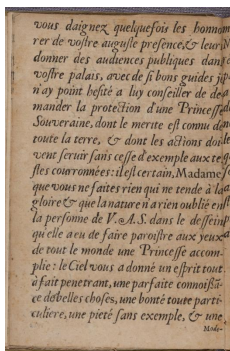 vous daignez quelquefois les honno-
rer de vostre auguste presence, & leur
donner des audiences publiques dans
vostre palais, avec de si bons guides je
n'ay point hesité a luy conseiller de de-
mander la protection d'une Princesse
Souveraine, dont le merite est connu de
toute la terre, & dont les actions doi-
vent servir sans cesse d'exemple aux te-
stes couronnées: il est certain, Madame
que vous ne faites rien qui ne tende à la
gloire & que la nature n'a rien oublié en
la personne de V. A. S. dans le dessein
qu'elle a eu de faire paroistre aux yeux
de tout le monde une Princesse accom-
plie: le Ciel vous a donné un esprit tout
à fait penetrant, une parfaite connoissã-
ce des belles choses, une bonté toute parti-
culiere, une pieté sans exemple, & une
Mode-